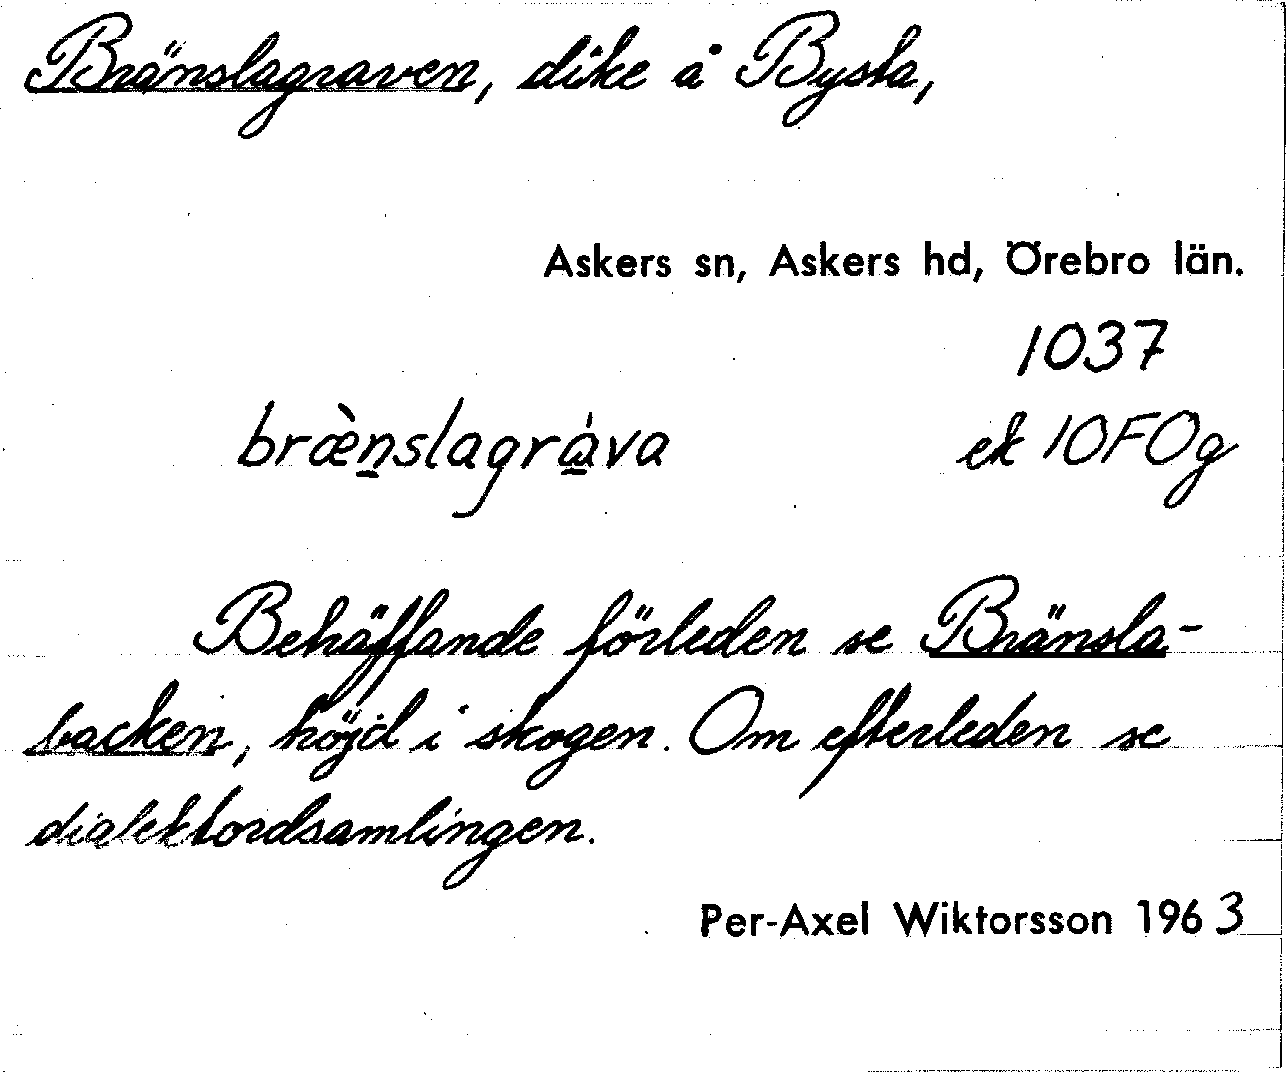 Bränslagraven, dike å Bysta,
Askers sn, Askers hd, Örebro län.
1037
bræ̀n̲slagrá̲va
ek 10F0g
Behäffande förleden se Bränsla-
backen, höjd i skogen. Om efterleden se
dialektordsamlingen.
Per-Axel Wiktorsson 1963